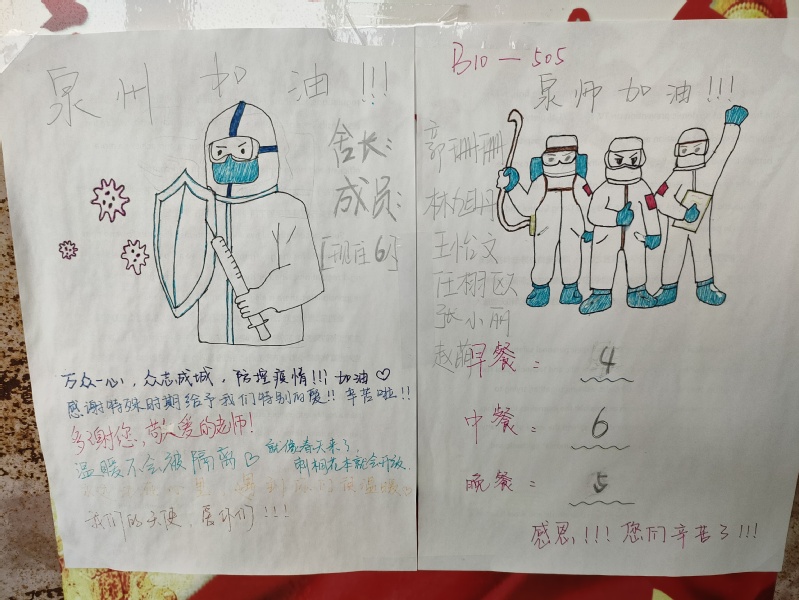 泉州加油!!!
舍长:
成员:
[现住6]
万众一心,众志成城,防控疫情!!!加油♡
感谢特殊时期给予我们特别的爱!!辛苦啦!!
多谢您,敬爱的老师!
温暖不会被隔离♡
就像春天来了
刺桐花本就会开放.
我们的天使,医师们!!!
B10-505
泉师加油!!!
郭珊珊
林旭丹
王怡文
汪栩欧
张小丽
赵萌
早餐: 4
中餐: 6
晚餐: 5
感恩!!!您们辛苦了!!!